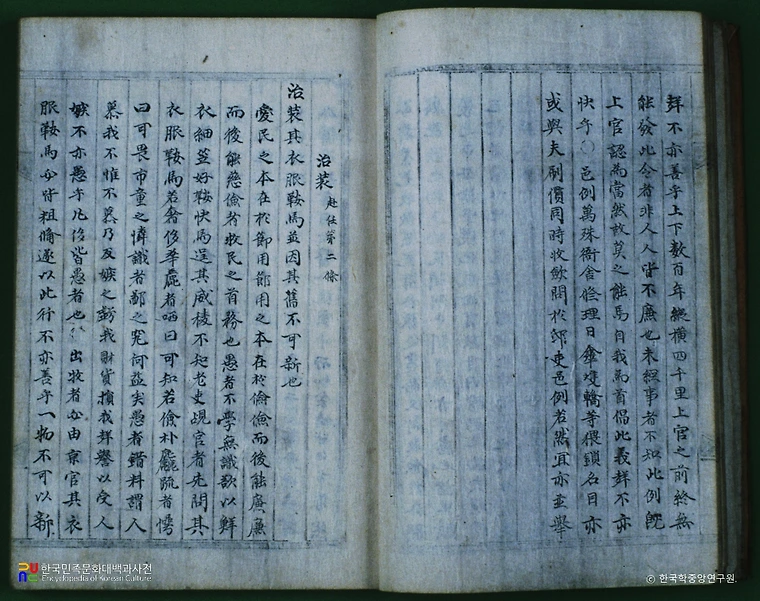 聲不亦善乎上下數百年縱橫四千里上官之前終無
能發此令者非人人皆不廉也未經事者不知此例旣
上官認為當然故莫之能焉自我為首倡此義聲不亦
快乎○邑例萬殊衙舍修理日盒雙轎等猥鎖名目亦
或與夫刷價同時收斂問於邸吏邑例若然宜亦並擧
治裝 赴任第二條
治裝其衣服鞍馬並因其舊不可新也
愛民之本在於節用節用之本在於儉儉而後能廉廉
而後能慈儉者牧民之首務也愚者不學無識欲以鮮
衣細笠好鞍快馬逞其威稜不知老吏覘官者先問其
衣服鞍馬若奢侈華麗者哂曰可知若儉朴麤疏者愕
曰可畏市童之偉識者鄙之究何益矣愚者錯料謂人
慕我不惟不慕乃反嫉之虧我財貨損我聲譽以受人
嫉不亦愚乎凡侈皆愚者也○出牧者必由京官其衣
服鞍馬必皆粗備遂以此行不亦善乎一物不可以新
한국민족문화대백과사전
Encyclopedia of Korean Culture
© 한국학중앙연구원